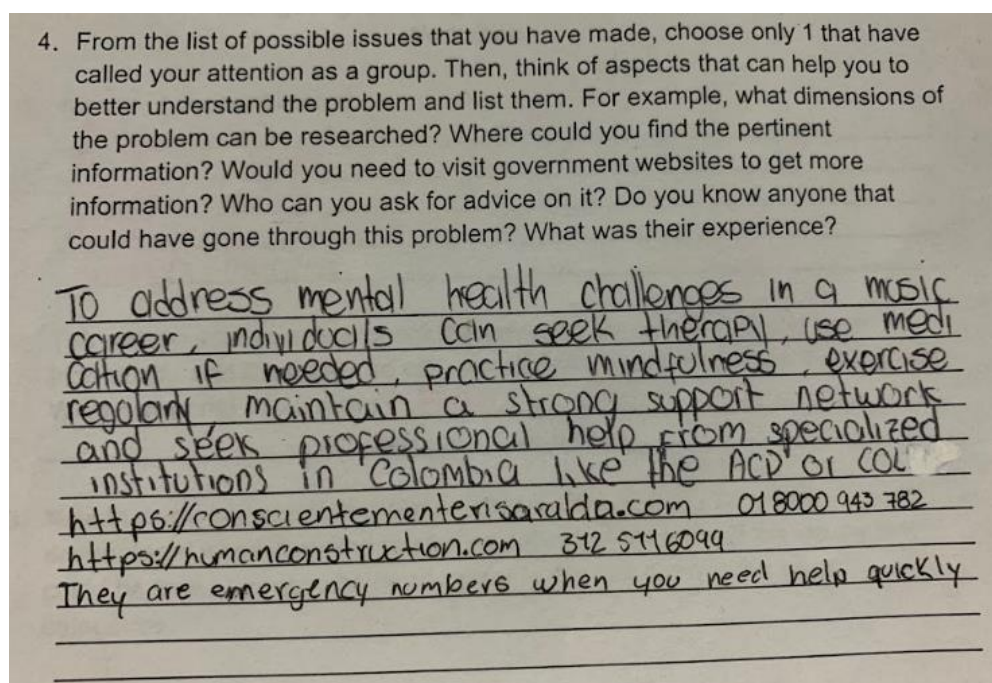 4. From the list of possible issues that you have made, choose only 1 that have
called your attention as a group. Then, think of aspects that can help you to
better understand the problem and list them. For example, what dimensions of
the problem can be researched? Where could you find the pertinent
information? Would you need to visit government websites to get more
information? Who can you ask for advice on it? Do you know anyone that
could have gone through this problem? What was their experience?
To address mental health challenges in a music
career, individuals can seek therapy, use medi
cation if needed, practice mindfulness, exercise
regolarly maintain a strong support network
and seek professional help from specialized
institutions in Colombia like the ACP or COL
https://conscientementerisaralda.com 018000 943 782
https://humanconstruction.com 312 5116099
They are emergency numbers when you need help quickly